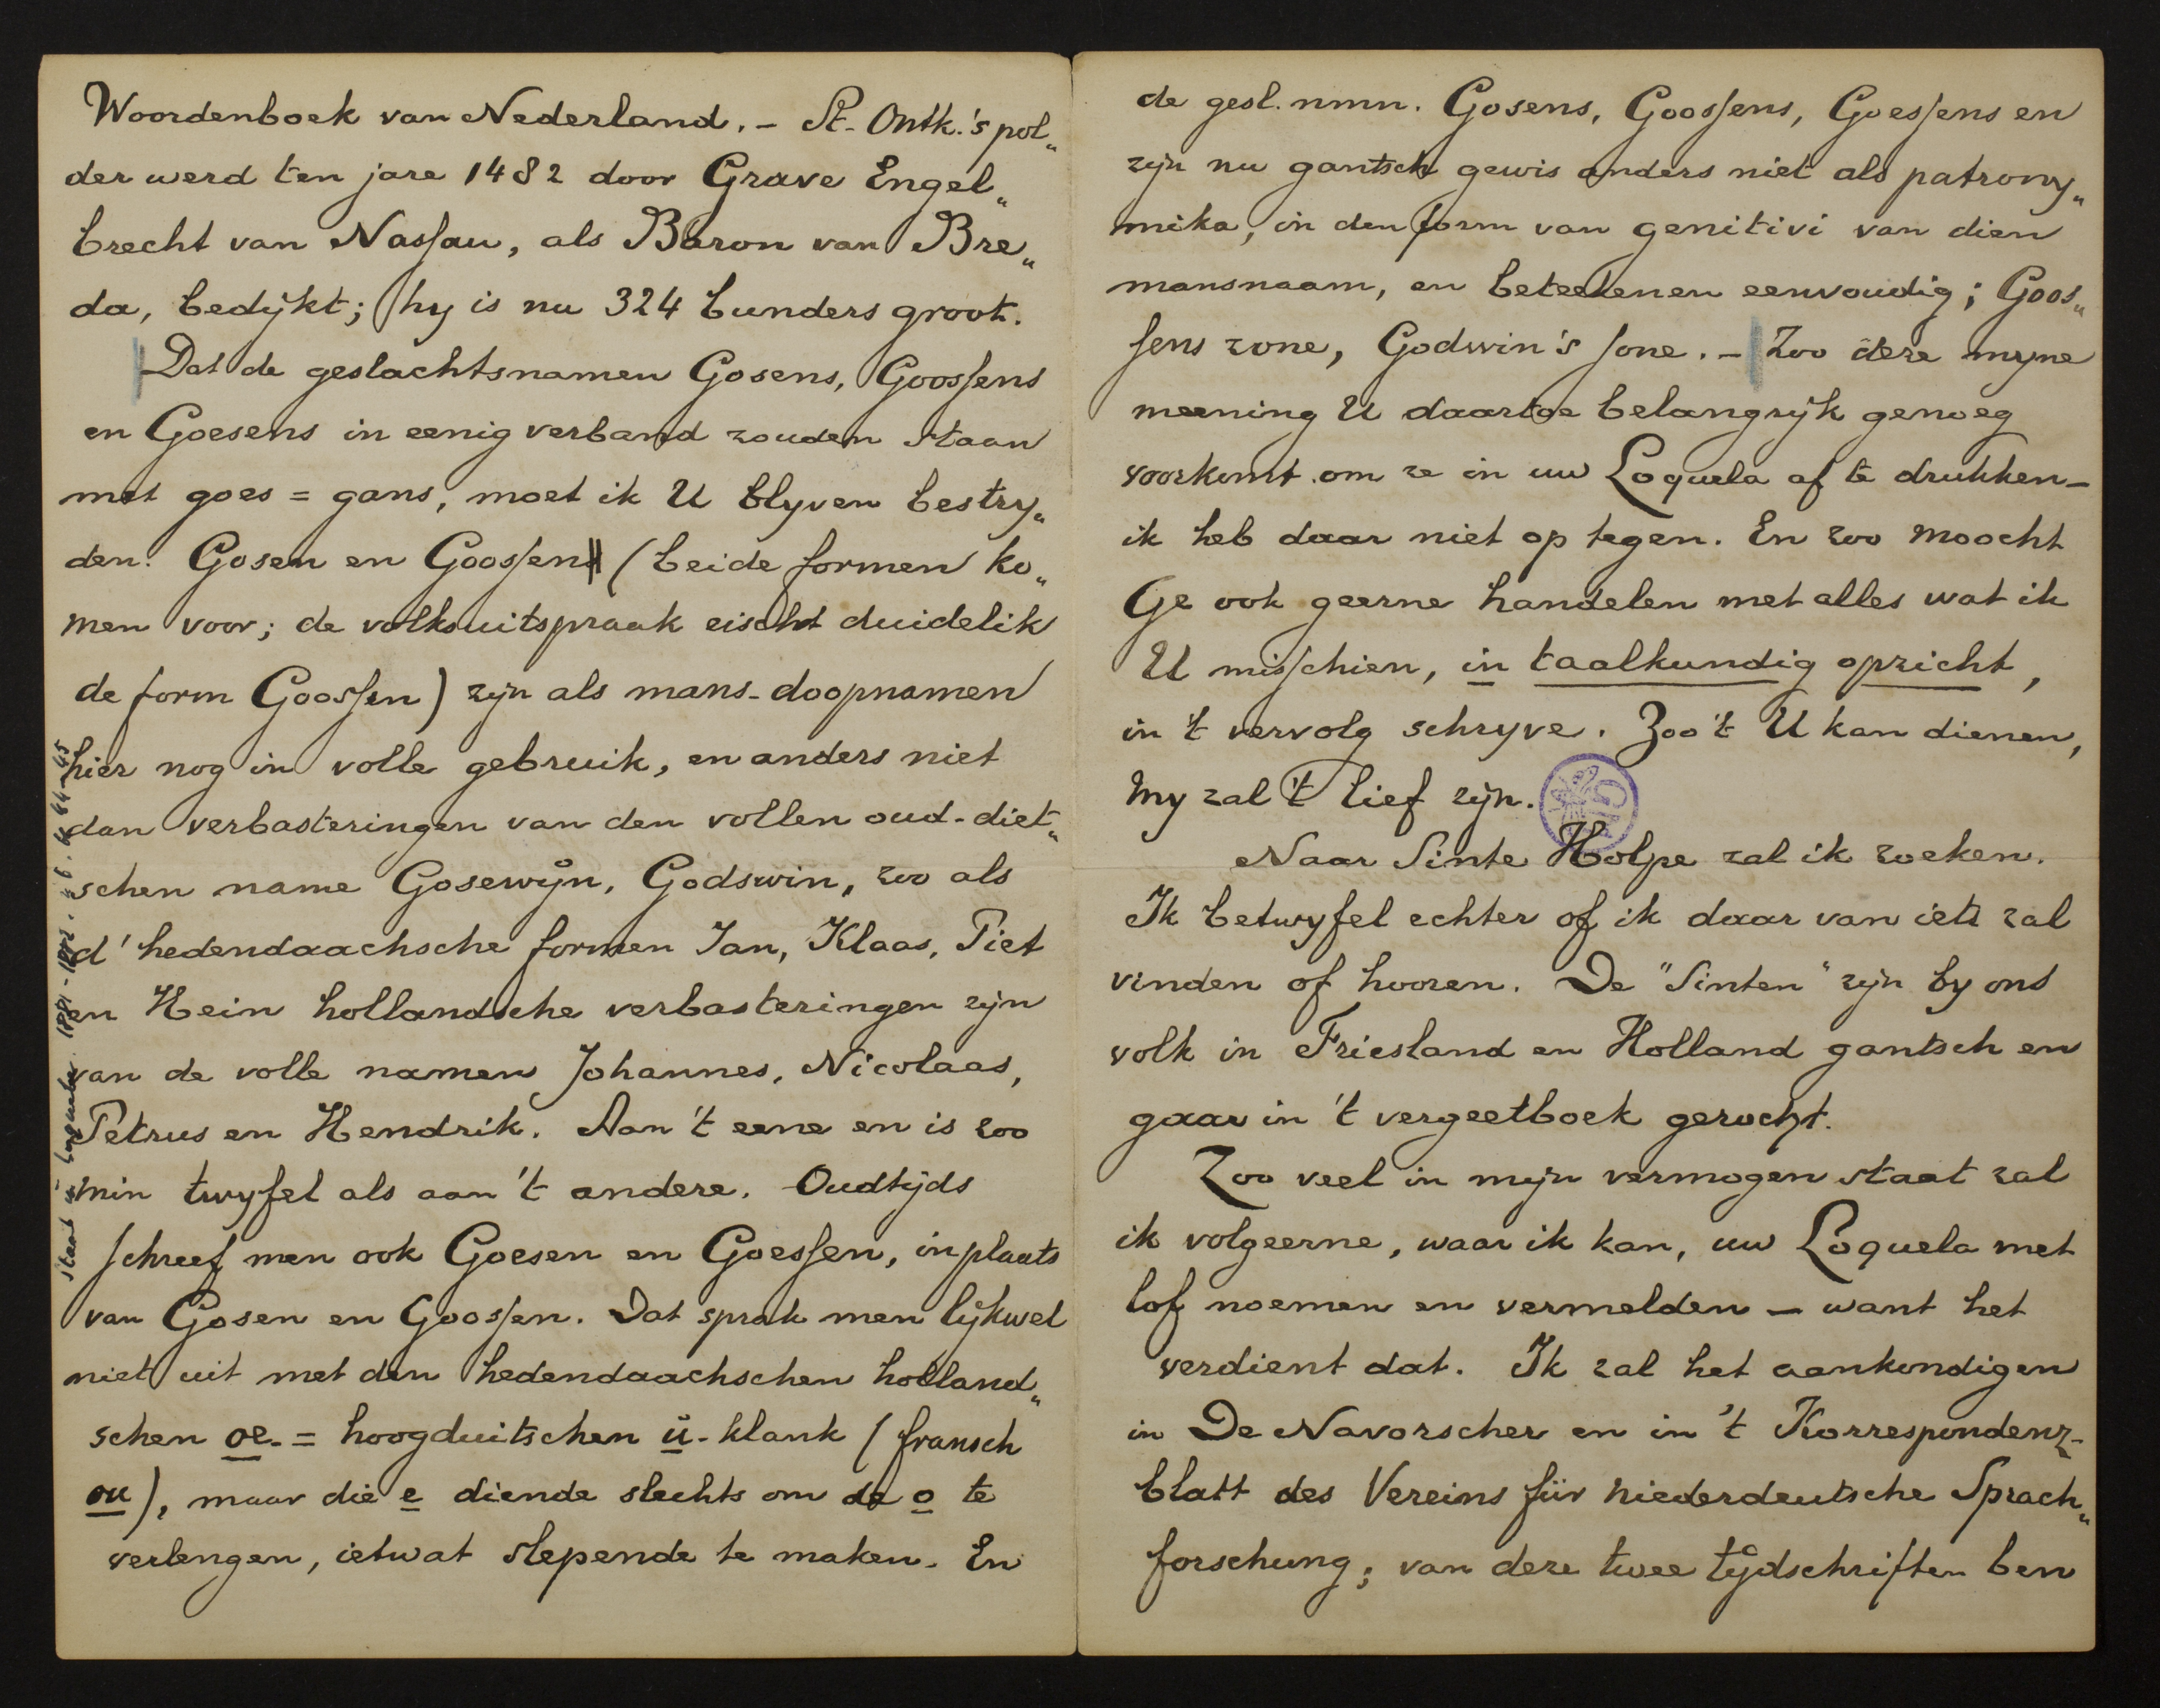 Woordenboek van Nederland. - St. Ontk.'s pol„
der werd ten jare 1482 door Grave Engel„
brecht van Nassau, als Baron van Bre„
da, bedijkt; hy is nu 324 bunders groot.
Dat de geslachtsnamen Gosens, Goossens
en Goesens in eenig verband zouden staan
met goes = gans, moet ik U blyven bestry„
den. Gosen en Goossen (beide formen ko„
men voor; de volksuitspraak eischt duidelik
de form Goossen) zijn als mans-doopnamen
hier nog in volle gebruik, en anders niet
dan verbasteringen van den vollen oud-diet„
schen name Gosewijn, Godswin, zoo als
d' hedendaachsche formen Jan, Klaas, Piet
en Hein hollandsche verbasteringen zijn
van de volle namen Johannes, Nicolaas,
Petrus en Hendrik. Aan 't eene en is zoo
min twyfel als aan 't andere. Oudtijds
schreef men ook Goesen en Goessen, in plaats
van Gosen en Goossen. Dat sprak men lijkwel
niet uit met den hedendaachschen holland„
schen oe = hoogduitschen ü-klank (fransch
ou), maar die e diende slechts om de o te
verlengen, ietwat slepende te maken. En
staat in Loquela 1881-1882
de gesl. nmn. Gosens, Goossens, Goessens en
zijn nu gantsch gewis anders niet als patrony„
mika, in den form van genitivi van dien
mansnaam, en beteekenen eenvoudig; Goos„
sens zone, Godwin's sone. - Zoo deze myne
meening U daartoe belangryk genoeg
voorkomt om ze in uw Loquela af te drukken -
ik heb daar niet op tegen. En zoo moocht
Ge ook geerne handelen met alles wat ik
U misschien, in taalkundig opzicht,
in 't vervolg schryve. Zoo 't U kan dienen,
my zal 't lief zijn.
Naar Sinte Holpe zal ik zoeken.
Ik betwyfel echter of ik daar van iets zal
vinden of hooren. De "Sinten" zijn by ons
volk in Friesland en Holland gantsch en
gaar in 't vergeetboek gerocht.
Zoo veel in mijn vermogen staat zal
ik volgeerne, waar ik kan, uw Loquela met
lof noemen en vermelden - want het
verdient dat. Ik zal het aankondigen
in De Navorscher en in 't Korrespondenz-
blatt des Vereins für niederdeutsche Sprach„
forschung; van deze twee tijdschriften ben